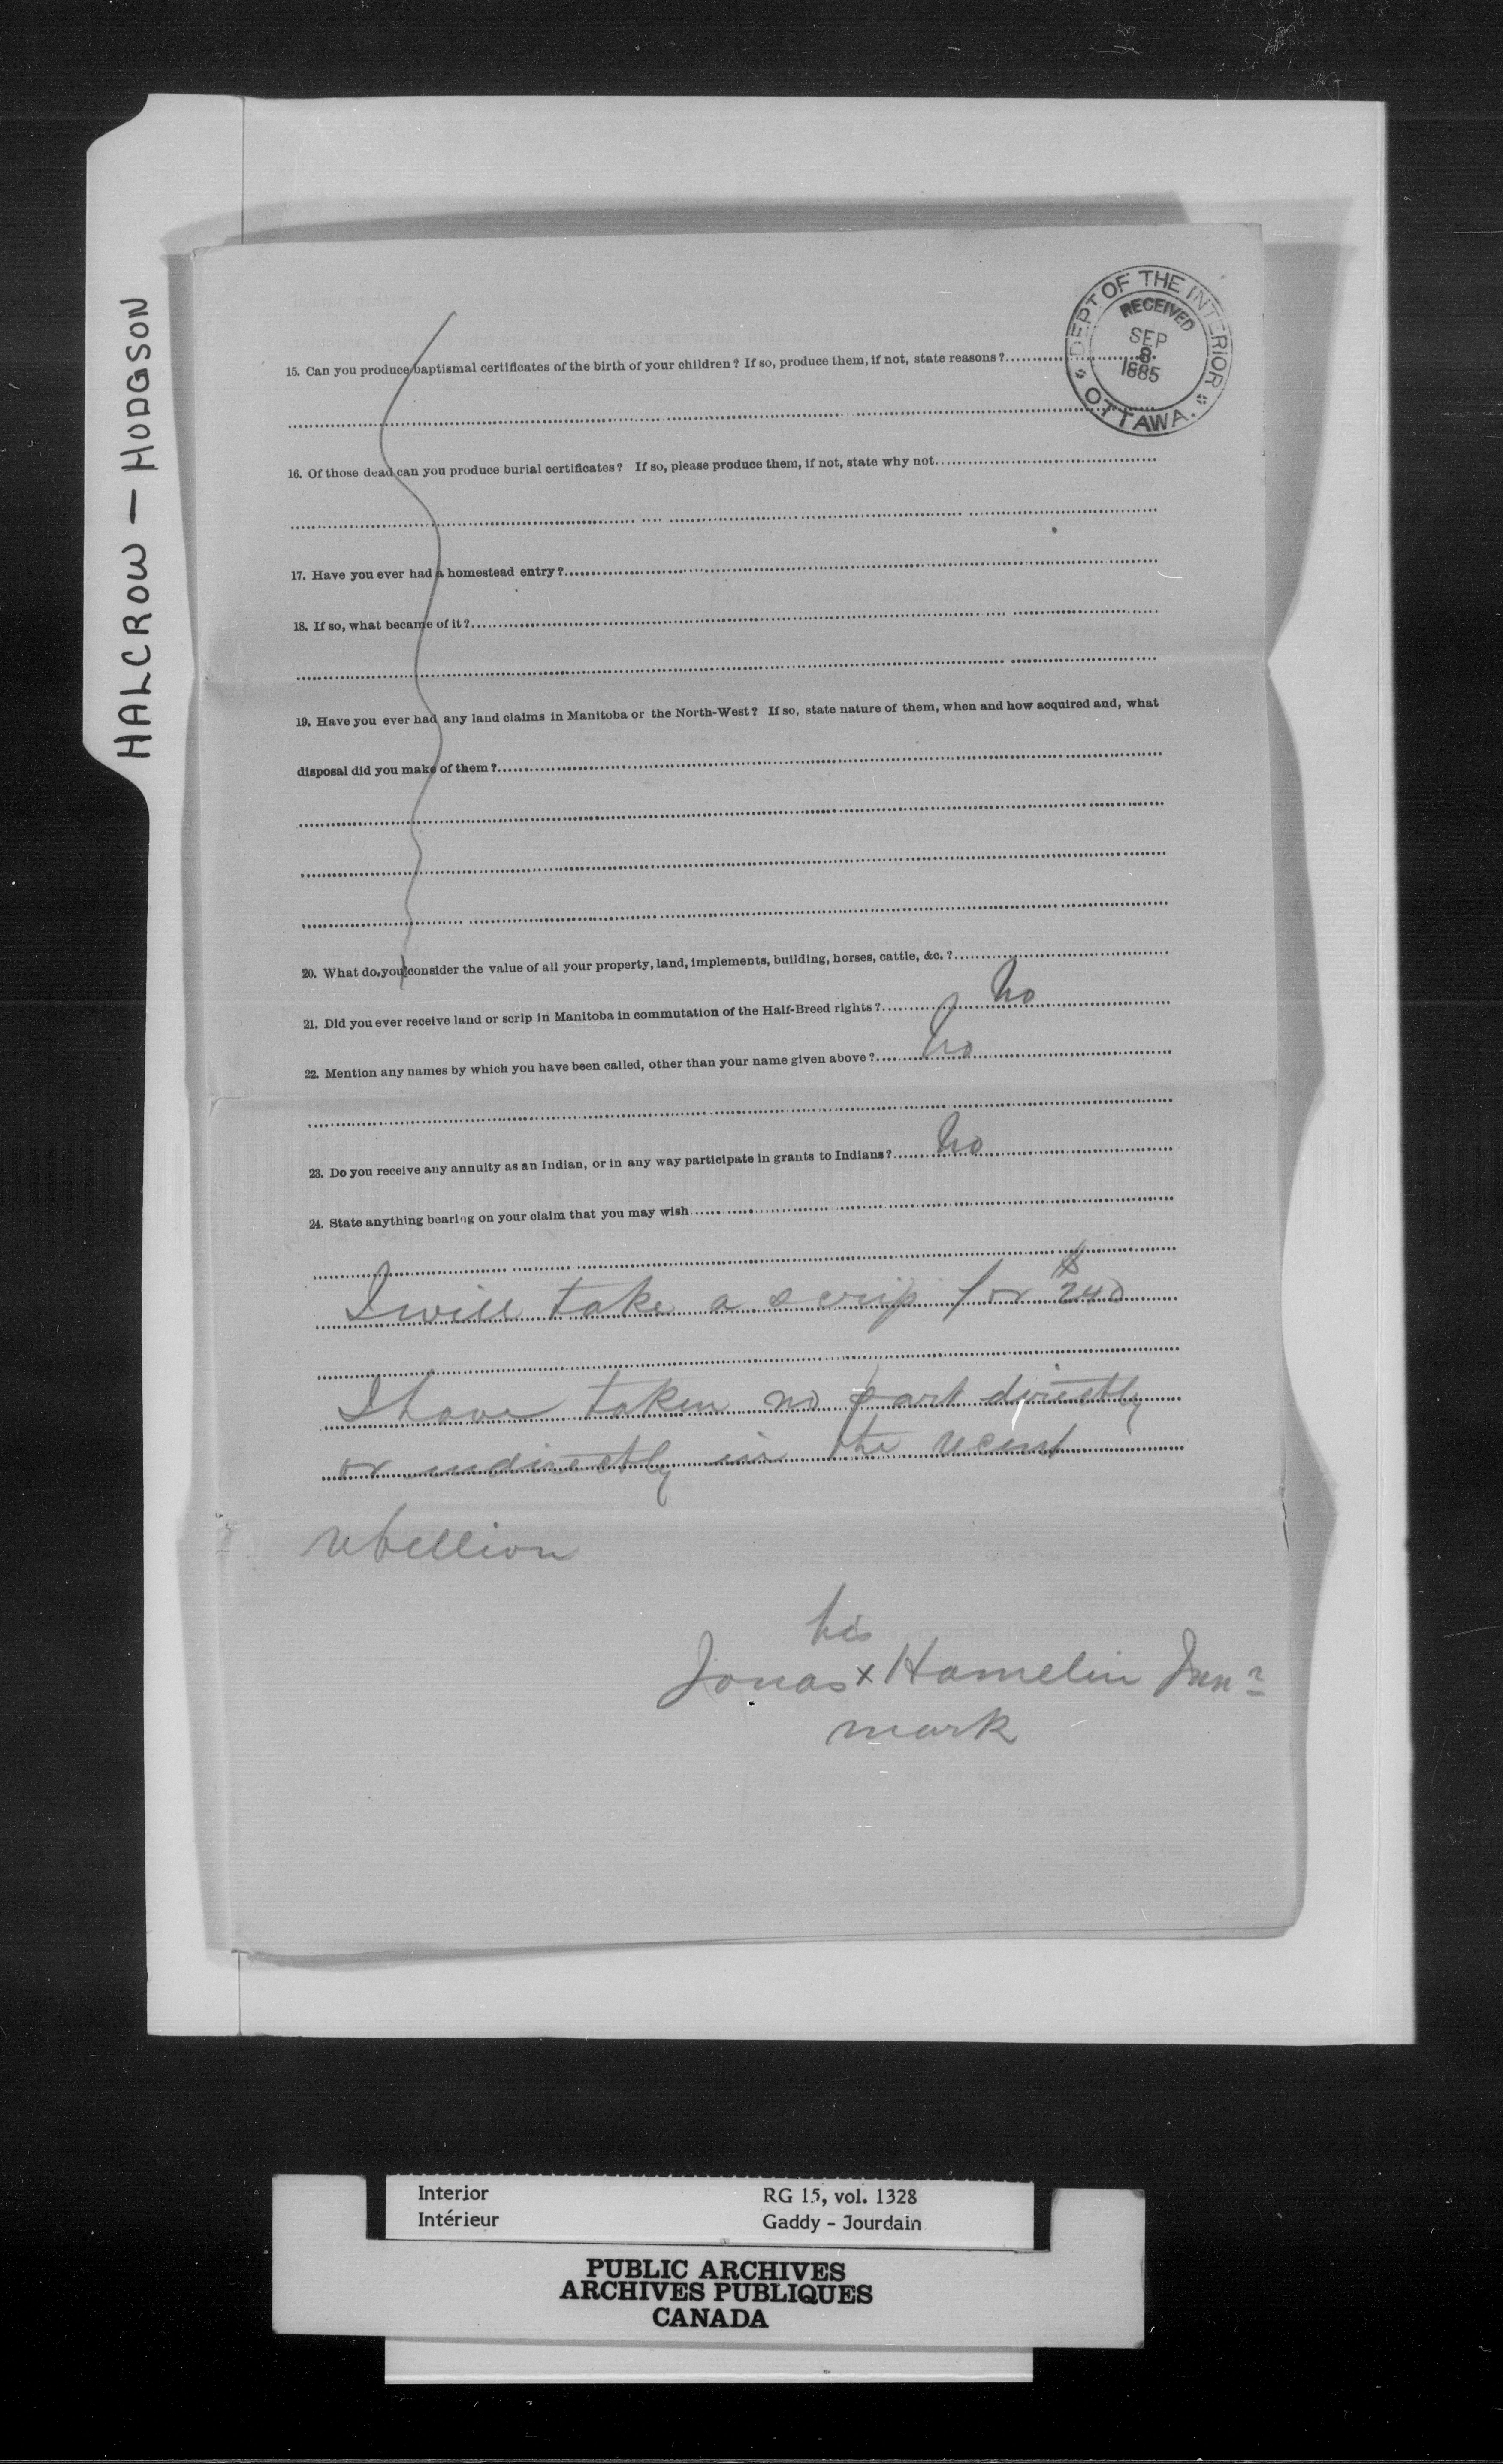 HALCROW — HODGSON
DEPT OF THE INTERIOR
RECEIVED
SEP
8.
1885
OTTAWA.
15. Can you produce baptismal certificates of the birth of your children? If so, produce them, if not, state reasons?
16. Of those dead can you produce burial certificates? If so, please produce them, if not, state why not
17. Have you ever had a homestead entry?
18. If so, what became of it?
19. Have you ever had any land claims in Manitoba or the North-West? If so, state nature of them, when and how acquired and, what
disposal did you make of them?
20. What do you consider the value of all your property, land, implements, building, horses, cattle, &c.?
21. Did you ever receive land or scrip in Manitoba in commutation of the Half-Breed rights? No
22. Mention any names by which you have been called, other than your name given above? No
23. Do you receive any annuity as an Indian, or in any way participate in grants to Indians? No
24. State anything bearing on your claim that you may wish
I will take a scrip for $240
I have taken no part directly
or indirectly in the recent
rebellion
his
Jonas x Hamelin Junr
mark
Interior RG 15, vol. 1328
Intérieur Gaddy - Jourdain
PUBLIC ARCHIVES
ARCHIVES PUBLIQUES
CANADA